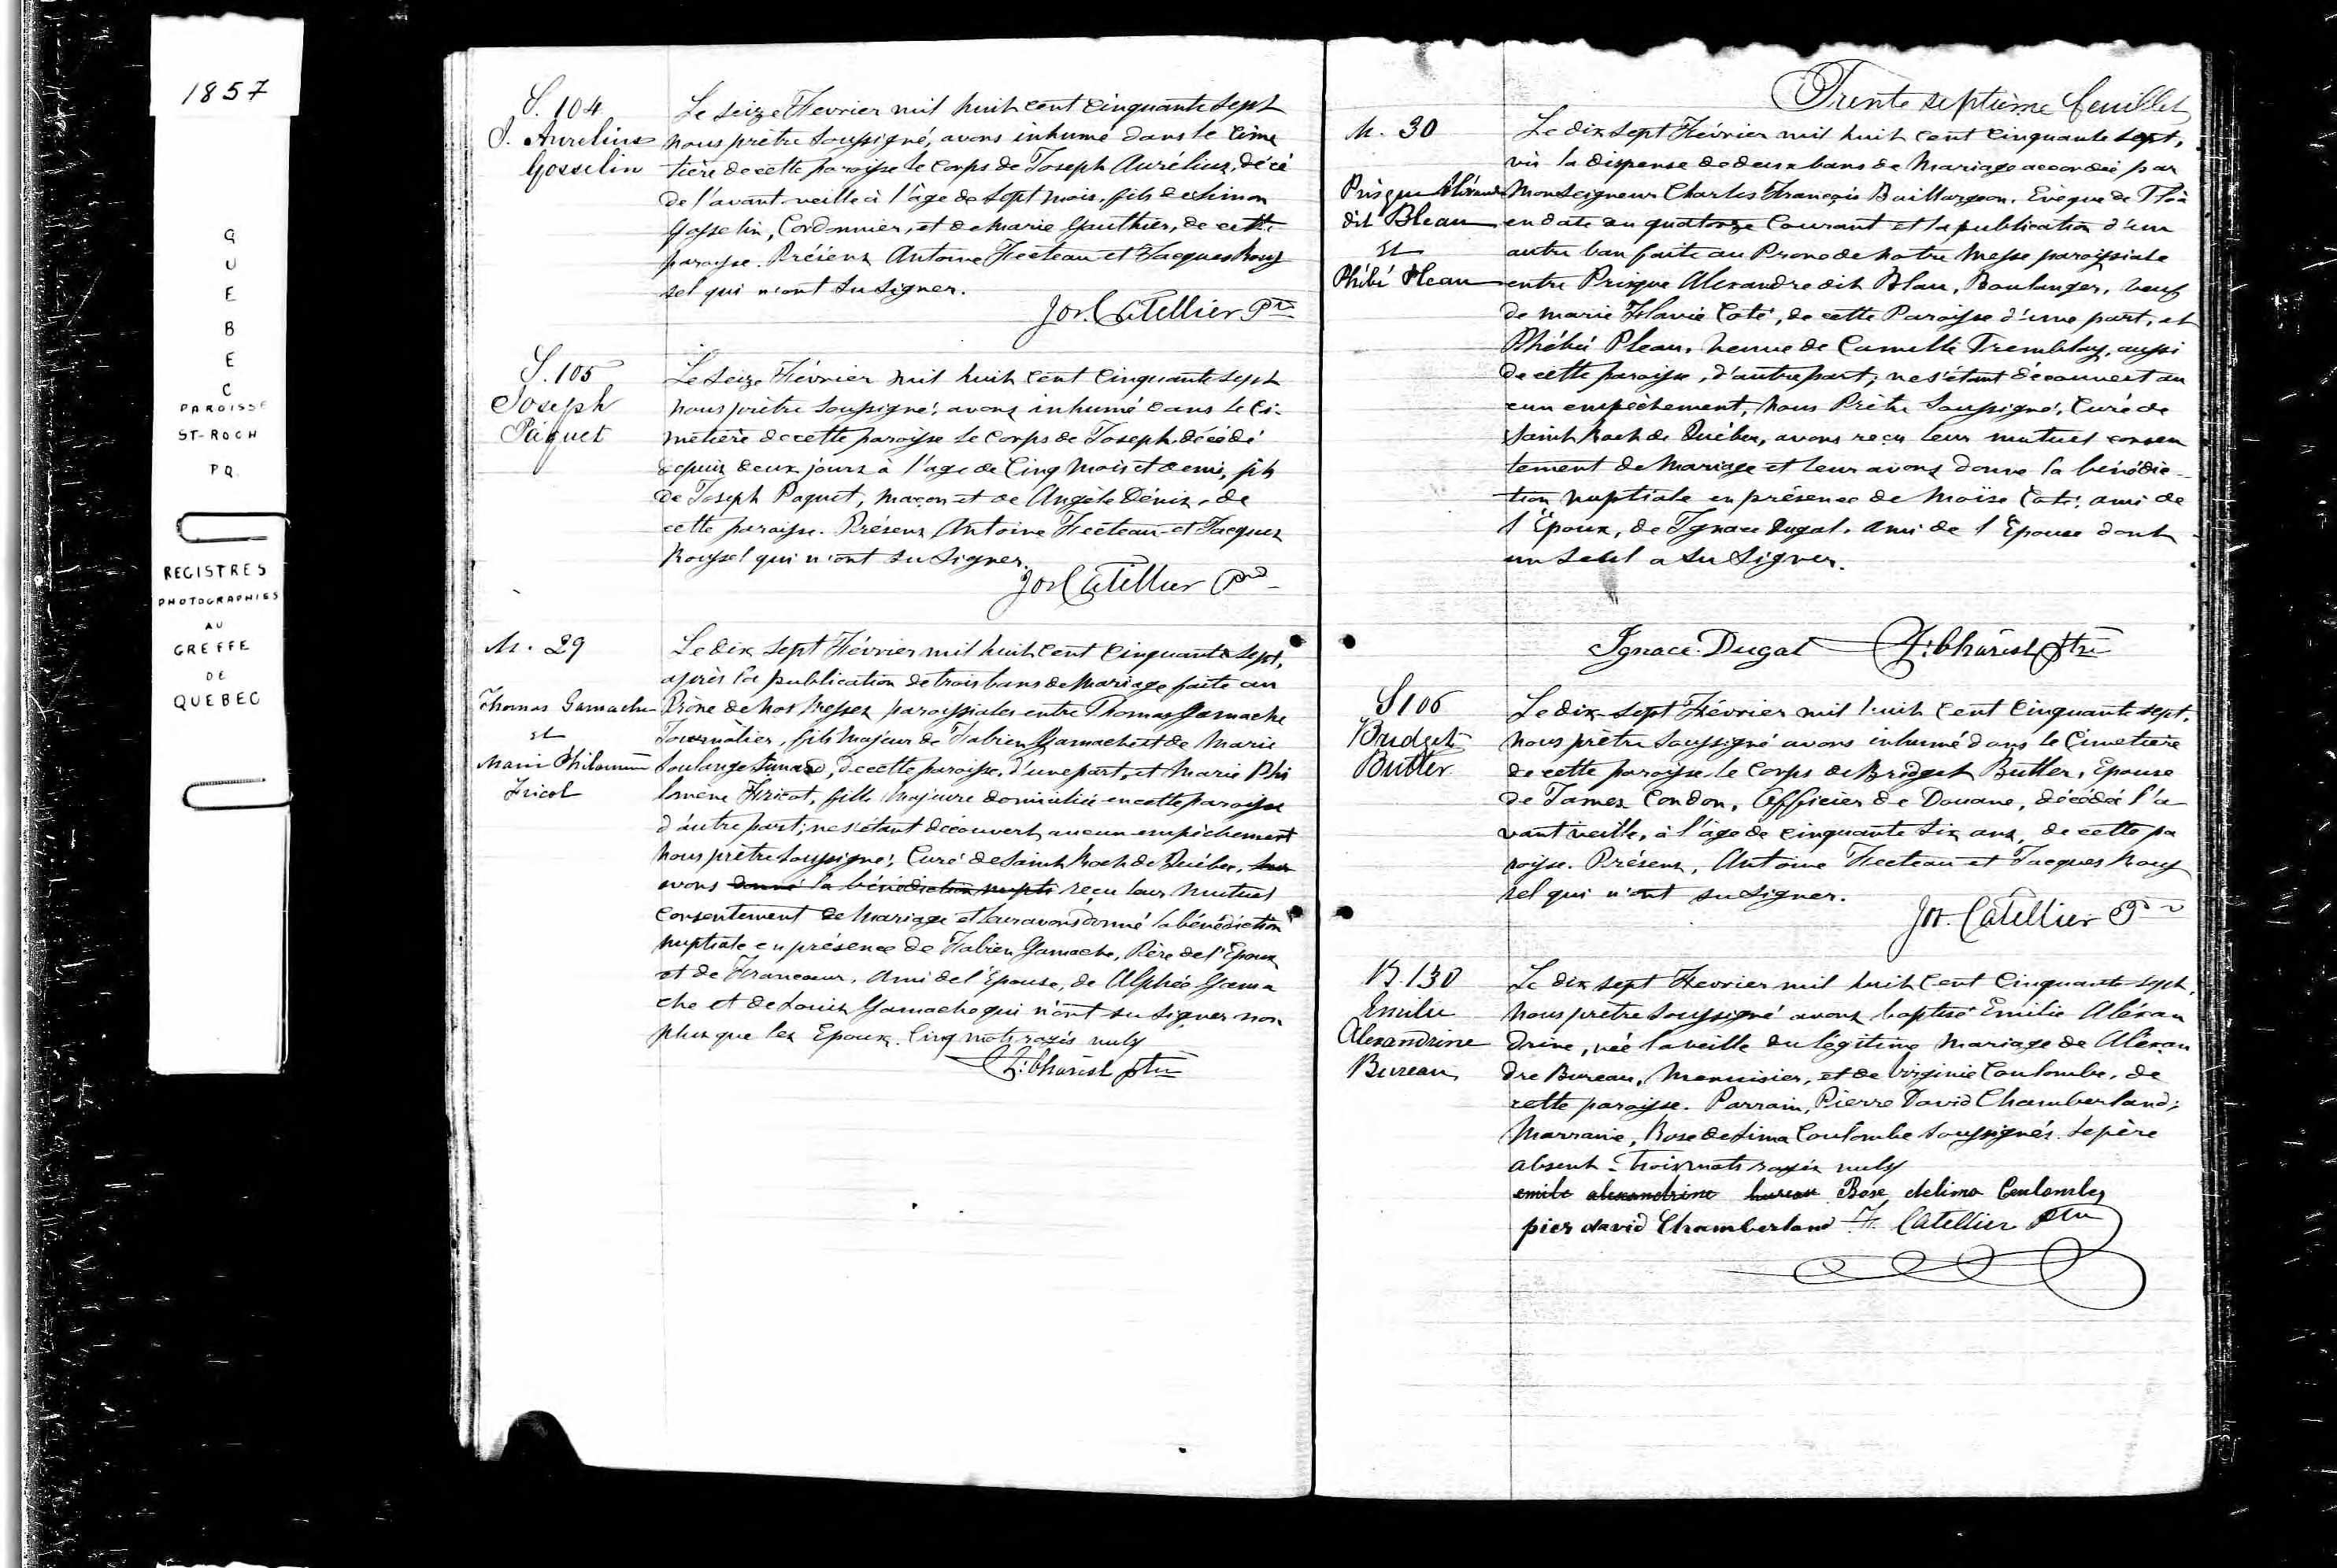 1857
QUEBEC
PAROISSE
ST-ROCH
P.Q.
REGISTRES
PHOTOGRAPHIES
AU
GREFFE
DE
QUEBEC
S. 104
J. Aurelius
Gosselin
Le seize Fevrier mil huit cent cinquante sept
nous prêtre soussigné, avons inhumé dans le cime
tière de cette paroisse le corps de Joseph Aurélius, décé
dé l'avant veille à l'âge de sept mois, fils de Simon
Gosselin, Cordonnier, et de Marie Gauthier, de cette
paroisse. Présens Antoine Fecteau et Jacques Rous
sel qui n'ont su signer.
Jos. Catellier Ptre
S. 105
Joseph
Paquet
Le seize Février mil huit cent cinquante sept
nous prêtre soussigné, avons inhumé dans le ci-
metière de cette paroisse le corps de Joseph, décédé
depuis deux jours à l'age de Cinq mois et demi, fils
de Joseph Paquet, maçon et de Angèle Dénis, de
cette paroisse. Présens Antoine Fecteau et Jacques
Roussel qui n'ont su signer.
Jos Catellier Ptre
M. 29
Thomas Gamache
et
Marie Philomène
Fricot
Le dix sept Février mil huit cent cinquante sept,
après la publication de trois bans de mariage faite au
Prône de nos Messes paroissiales entre Thomas Gamache
Journalier, fils majeur de Fabien Gamache et de Marie
Soulange Simard, de cette paroisse, d'une part, et Marie Phi
lomène Fricot, fille majeure domiciliée en cette paroisse
d'autre part; ne s'étant découvert aucun empêchement
Nous prêtre soussigné, Curé de Saint Roch de Québec,
avons donné la bénédiction nupti reçu leur mutuel
consentement de mariage et leur avons donné la bénédiction
nuptiale en présence de Fabien Gamache, Père de l'Epoux
et de Francoeur, Ami de l'Epouse, de Alphée Gama
che et de Louis Gamache qui n'ont su signer non
plus que les Epoux. Cinq mots rayés nuls
Z: Charest ptre
Trente septième feuillet
M. 30
Prisque Alexandre
dit Bleau
et
Phébé Pleau
Le dix sept Février mil huit cent cinquante sept,
vû la dispense de deux bans de Mariage accordée par
Monseigneur Charles François Baillargeon, Evèque de Tloa
en date du quatorze Courant et la publication d'un
autre ban faite au Prone de notre Messe paroissiale
entre Prisque Alexandre dit Blau, Boulanger, veuf
de marie Flavie Coté, de cette Paroisse d'une part, et
Phébée Pleau, veuve de Camille Tremblay, aussi
de cette paroisse, d'autre part; ne s'étant découvert au
cun empêchement, nous Prêtre soussigné, Curé de
Saint Roch de Québec, avons reçu leur mutuel consen
tement de Mariage et leur avons donné la bénédic-
tion nuptiale en présence de Moïse Coté, ami de
l'Epoux, de Ignace Dugal, Ami de l'Epouse dont
un seul a su signer.
Ignace Dugal Z: Charest ptre
S 106
Bridget
Butler
Le dix-sept Février mil huit cent cinquante sept,
nous prêtre soussigné avons inhumé dans le Cimetière
de cette paroisse le Corps de Bridget Butler, Epouse
de James Condon, Officier de Douane, décédée l'a
vant veille, à l'âge de cinquante six ans, de cette pa
roisse. Présens, Antoine Fecteau et Jacques Rous
sel qui n'ont su signer.
Jos. Catellier Ptre
B. 130
Emilie
Alexandrine
Bureau
Le dix sept Fevrier mil huit cent cinquante sept,
nous prêtre soussigné avons baptisé Emilie Aléxan
drine, née la veille du légitime mariage de Aléxan
dre Bureau, Menuisier, et de Virginie Coulombe, de
cette paroisse. Parrain, Pierre David Chamberland;
Marraine, Rose de Lima Coulombe soussignés. Le père
absent. Trois mots rayés nuls
emile alexandrine bureau Rose delima Coulombe
pier david Chamberland Js. Catellier Ptre